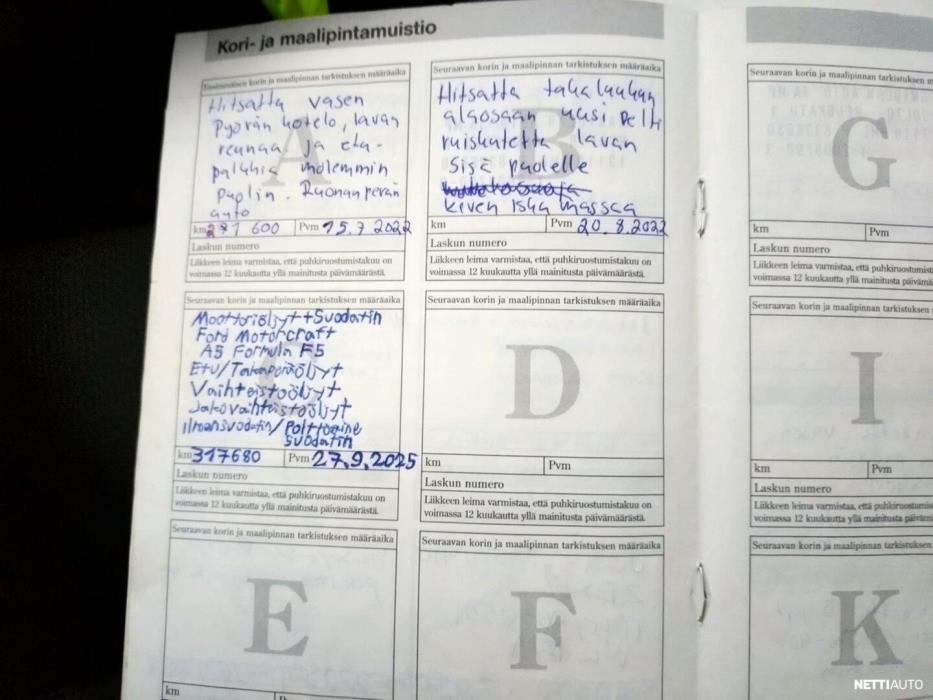 Kori- ja maalipintamuistio
Ensimmäisen korin ja maalipinnan tarkistuksen määräaika
A
Hitsattu vasen
Pyörän kotelo, lavan
reunaa ja eta-
palkkia molemmin
Puolin. Ruonanperän
auto
km 281 600 Pvm 15.7 2022
Laskun numero
Liikkeen leima varmistaa, että puhkiruostumistakuu on
voimassa 12 kuukautta yllä mainitusta päivämäärästä.
Seuraavan korin ja maalipinnan tarkistuksen määräaika
B
Hitsattu takaluukun
alaosaan uusi Pelti
ruiskutettu lavan
Sisä puolelle
kiven isku massaa
km Pvm 20.8.2022
Laskun numero
Liikkeen leima varmistaa, että puhkiruostumistakuu on
voimassa 12 kuukautta yllä mainitusta päivämäärästä.
Seuraavan korin ja maalipinnan tarkistuksen määräaika
C
Moottoriöljyt+Suodatin
Ford Motorcraft
A5 Formula F5
Etu/Takaperäöljyt
Vaihteistoöljyt
Jakovaihteistoöljyt
ilmansuodatin/Polttoaine
Suodatin
km 317680 Pvm 27.9.2025
Laskun numero
Liikkeen leima varmistaa, että puhkiruostumistakuu on
voimassa 12 kuukautta yllä mainitusta päivämäärästä.
Seuraavan korin ja maalipinnan tarkistuksen määräaika
D
km Pvm
Laskun numero
Liikkeen leima varmistaa, että puhkiruostumistakuu on
voimassa 12 kuukautta yllä mainitusta päivämäärästä.
Seuraavan korin ja maalipinnan tarkistuksen määräaika
E
km
Seuraavan korin ja maalipinnan tarkistuksen määräaika
F
Seuraavan korin ja maalipinnan
G
km Pvm
Laskun numero
Liikkeen leima varmistaa, että
voimassa 12 kuukautta yllä mainitusta
Seuraavan korin ja maalipinnan tarkistuksen
I
km Pvm
Laskun numero
Liikkeen leima varmistaa, että
voimassa 12 kuukautta yllä mainitusta
Seuraavan korin ja maalipinnan tarkistuksen
K
NETTIAUTO